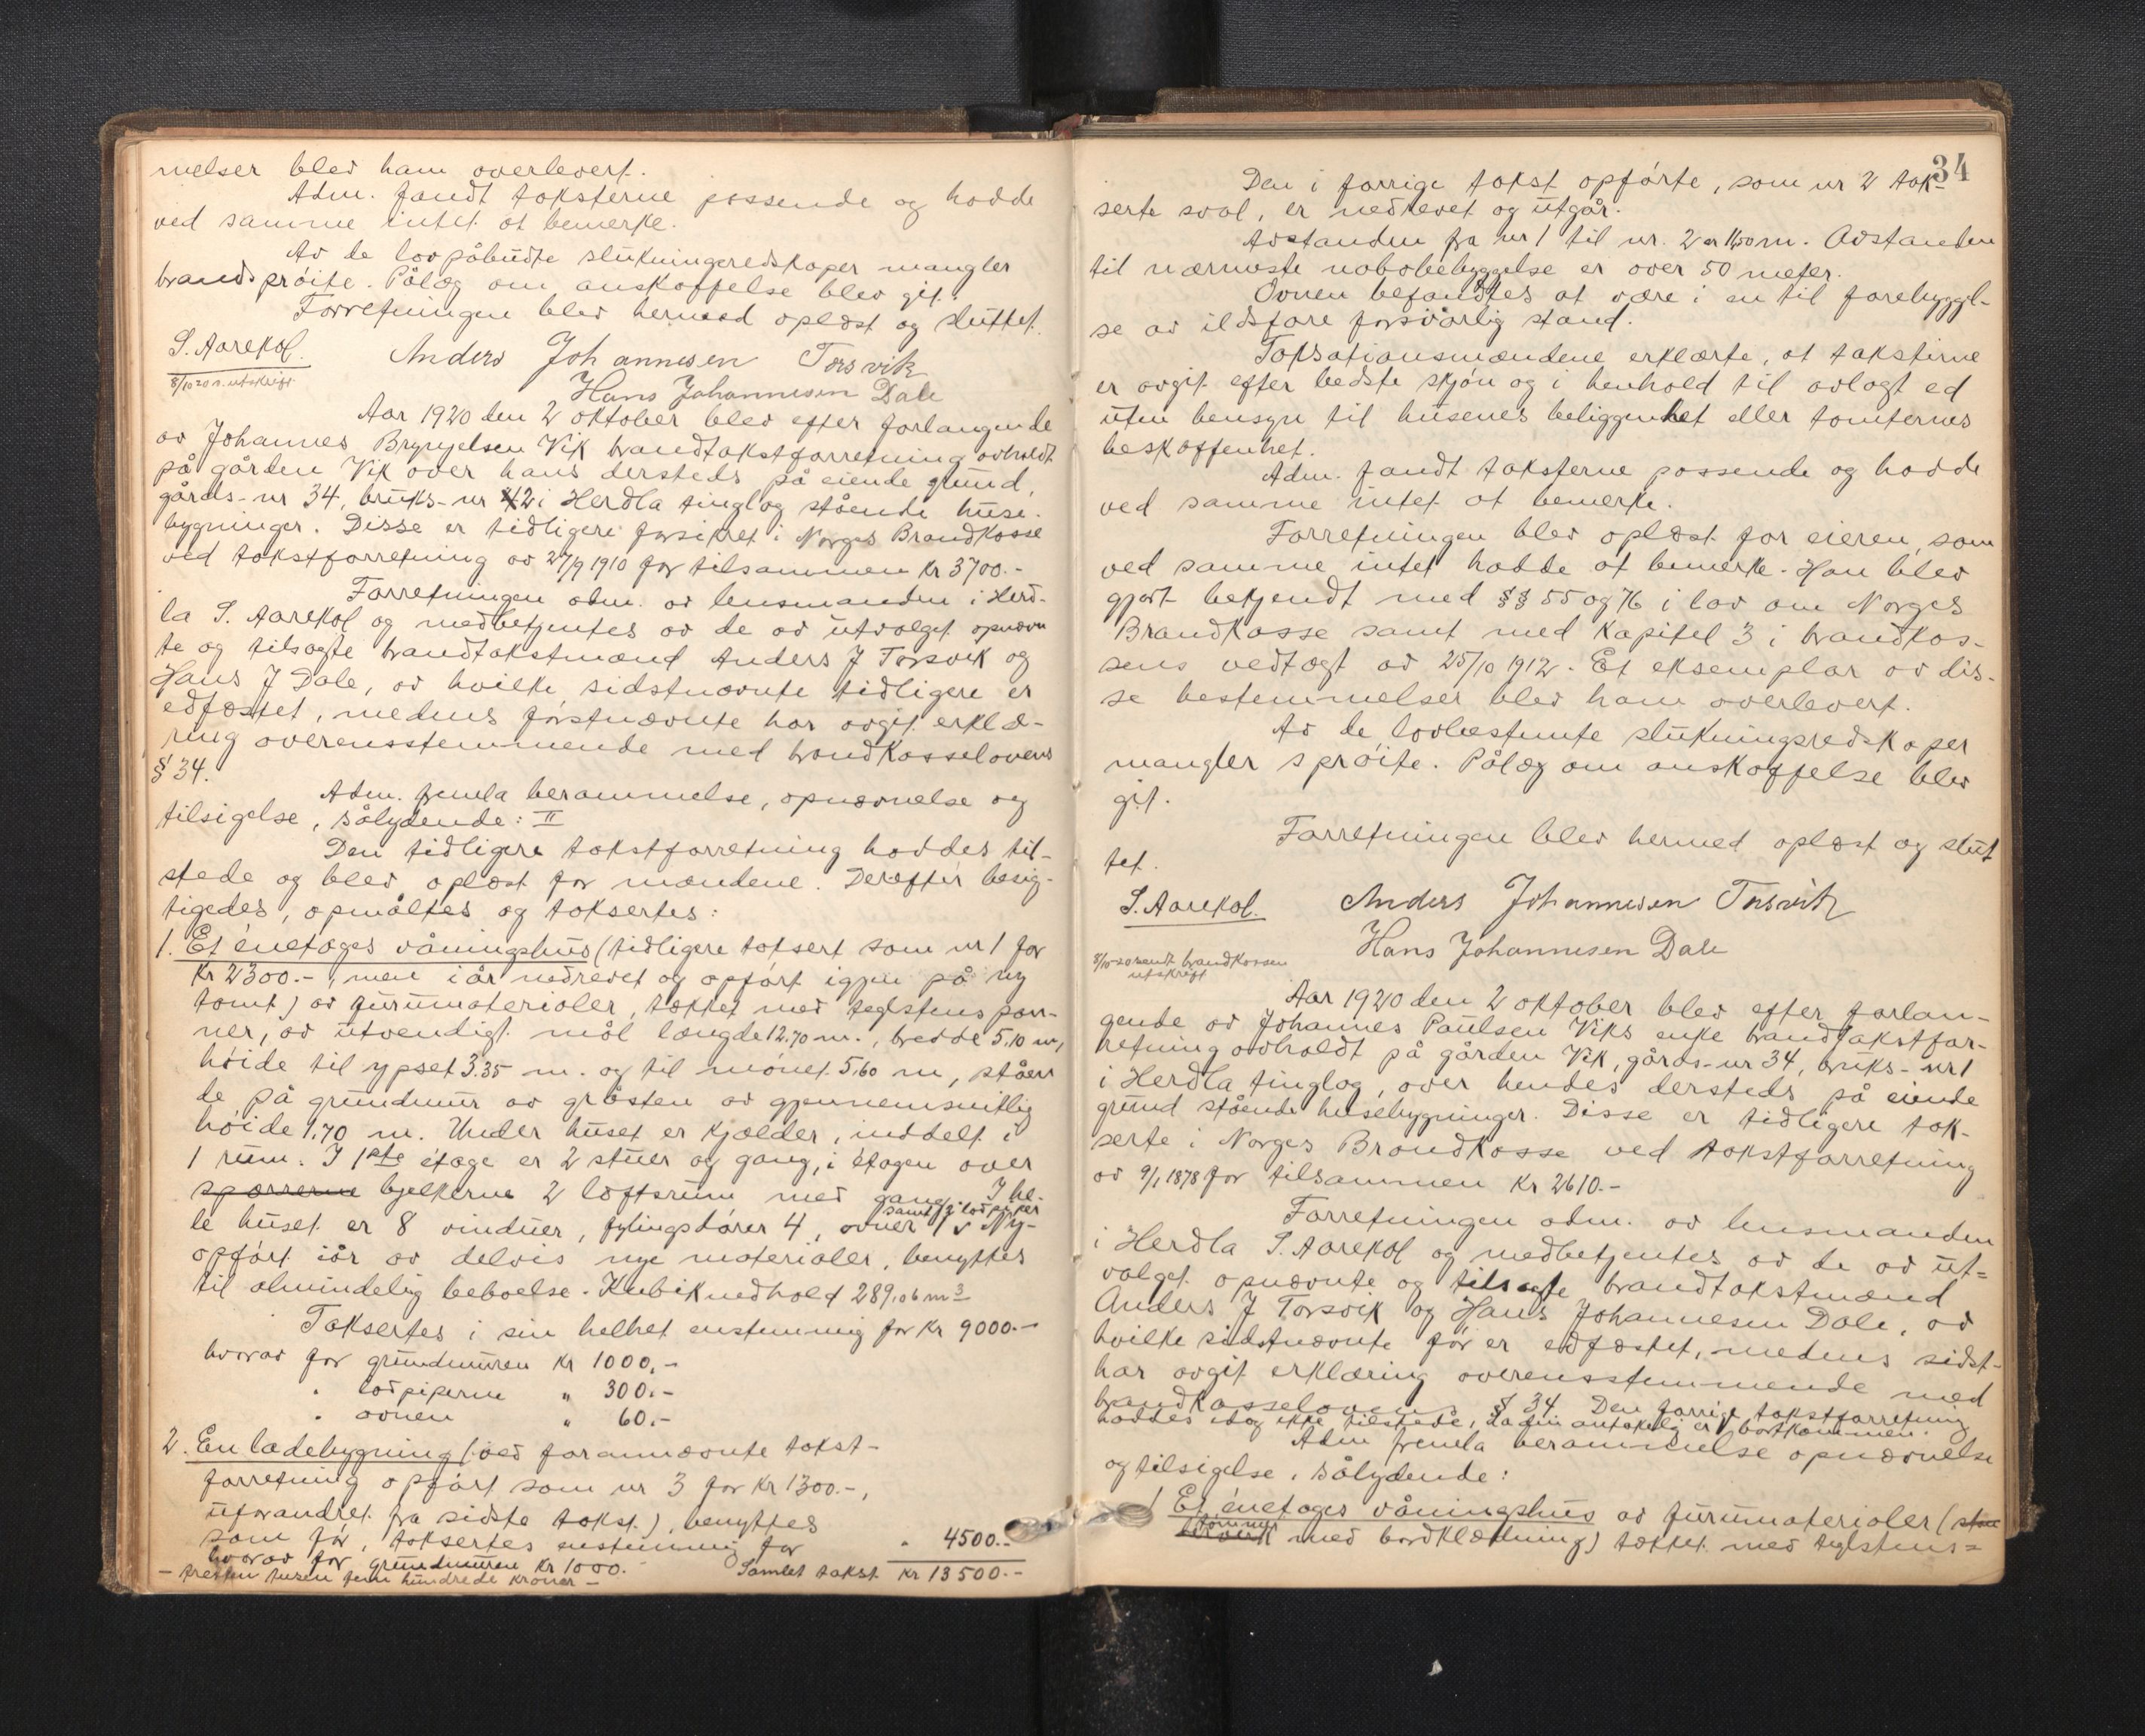 melser blev ham overlevert.
Adm. fandt taksterne passende og hadde
ved samme intet at bemerke.
Av de lovpåbudte slukningsredskaper mangler
brandsprøite. Pålæg om anskaffelse blev git.
Forretningen blev hermed oplæst og sluttet.
S. Aarekol. Anders Johannesen Torsvik
8/10 20 s. utskrift Hans Johannesen Dale
Aar 1920 den 2 oktober blev efter forlangende
av Johannes Brynjelsen Vik brandtakstforretning avholdt
på gården Vik over hans dersteds på eiende grund,
gårds-nr 34, bruks-nr 2 i Herdla tinglag stående huse-
bygninger. Disse er tidligere forsikret i Norges Brandkasse
ved takstforretning av 27/9 1910 for tilsammen kr 3700.-
Forretningen adm. av lensmanden i Herd-
la S. Aarekol og medbetjentes av de av utvalget opnævn
te og tilsagte brandtakstmænd Anders J Torsvik og
Hans J Dale, av hvilke sidstnævnte tidligere er
edfæstet, medens førstnævnte har avgit erklæ-
ring overensstemmende med brandkasselovens
§ 34.
Adm. fremla berammelse, opnævnelse og
tilsigelse, sålydende: II
Den tidligere takstforretning haddes til-
stede og blev oplæst for mændene. Derefter besig-
tigedes, opmåltes og taksertes:
1. Et énetages våningshus (tidligere taksert som nr 1 for
kr 2300.-, men i år nedrevet og opført igjen på ny
tomt) av furumaterialer, tækket med teglstenspan-
ner, av utvendigt mål længde 12.70 m., bredde 5,10 m,
høide til ypset 3.35 m. og til mønet 5,60 m, ståen
de på grundmur av gråsten av gjennemsnitlig
høide 1,70 m. Under huset er kjælder, inddelt i
1 rum. I 1ste etage er 2 stuer og gang, i etagen over
sparrerne bjelkerne 2 loftsrum med gang. I he-
samt 2 lodpiper
le huset er 8 vinduer, fylingsdører 4, ovner 1 v Ny-
opført iår av delvis nye materialer, benyttes
til almindelig beboelse. Kubikindhold 289,06 m3
Taksertes i sin helhet enstemmig for kr 9000.-
hvorav for grundmuren kr 1000,-
" lodpiperne " 300.-
" ovnen " 60.-
2. En ladebygning (: ved forannævnte takst-
forretning opført som nr 3 for kr 1300.-,
uforandret fra sidste takst.), benyttes
som før, taksertes enstemmig for " 4500.-
hvorav for grundmuren kr 1000. Samlet takst kr 13500.-
- tretten tusen fem hundrede kroner -
34
Den i forrige takst opførte, som nr 2 tak-
serte sval, er nedrevet og utgår.
Avstanden fra nr 1 til nr. 2 er 11,50 m. Avstanden
til nærmeste nabobebyggelse er over 50 meter.
Ovnen befandtes at være i en til forebyggel-
se av ildsfare forsvarlig stand.
Taksationsmændene erklærte, at taksterne
er avgit efter bedste skjøn og i henhold til avlagt ed
uten hensyn til husenes beliggenhet eller tomternes
beskaffenhet.
Adm. fandt taksterne passende og hadde
ved samme intet at bemerke.
Forretningen blev oplæst for eieren, som
ved samme intet hadde at bemerke. Han blev
gjort bekjendt med §§ 55 og 76 i lov om Norges
Brandkasse samt med kapitel 3 i brandkas-
sens vedtægt av 25/10 1912. Et eksemplar av dis-
se bestemmelser blev ham overlevert.
Av de lovbestemte slukningsredskaper
mangler sprøite. Pålæg om anskaffelse blev
git.
Forretningen blev hermed oplæst og slut
tet.
S. Aarekol. Anders Johannesen Torsvik
Hans Johannesen Dale
8/10-20 sendt brandkassen
utskrift
Aar 1920 den 2 oktober blev efter forlan-
gende av Johannes Paulsen Viks enke brandtakstfor-
retning avholdt på gården Vik, gårds-nr 34, bruks-nr 1
i Herdla tinglag, over hendes dersteds på eiende
grund stående husebygninger. Disse er tidligere tak-
serte i Norges Brandkasse ved takstforretning
av 9/1 1878 for tilsammen kr 2610.-
Forretningen adm. av lensmanden
i Herdla S. Aarekol og medbetjentes av de av ut-
valget opnævnte og tilsagte brandtakstmænd
Anders J Torsvik og Hans Johannesen Dale, av
hvilke sidstnævnte før er edfæstet, medens sidst-
har avgit erklæring overensstemmende med
brandkasselovens § 34. Den forrige takstforretning
haddes idag ikke tilstede, da den antakelig er bortkommen.
Adm fremla berammelse opnævnelse
og tilsigelse, sålydende:
1 Et énetages våningshus av furumaterialer (
tømmer med bordklædning) tækket med teglstens=